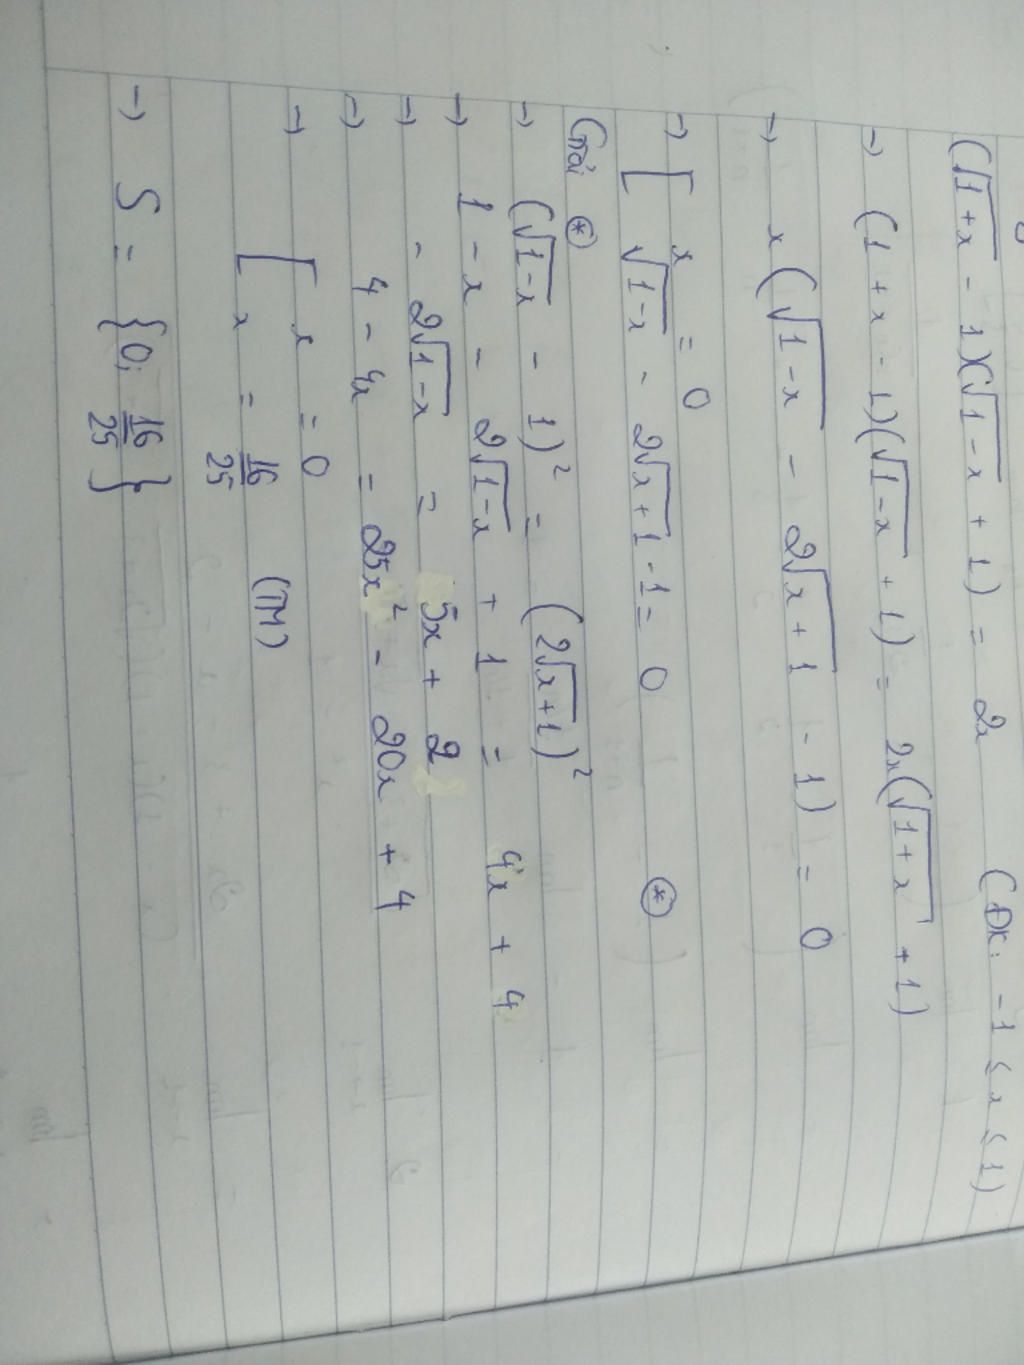 (√1+x - 1)(√1-x + 1) = 2x (ĐK: -1 ≤ x ≤ 1)
→ (1 + x - 1)(√1-x + 1) = 2x(√1+x + 1)
→ x(√1-x - 2√x+1 - 1) = 0
→ [ x = 0
√1-x - 2√x+1 - 1 = 0 (*)
Giải (*)
→ (√1-x - 1)² = (2√x+1)²
→ 1 - x - 2√1-x + 1 = 4x + 4
→ - 2√1-x = 5x + 2
→ 4 - 4x = 25x² - 20x + 4
→ [ x = 0
x = 16/25 (TM)
→ S = {0; 16/25}